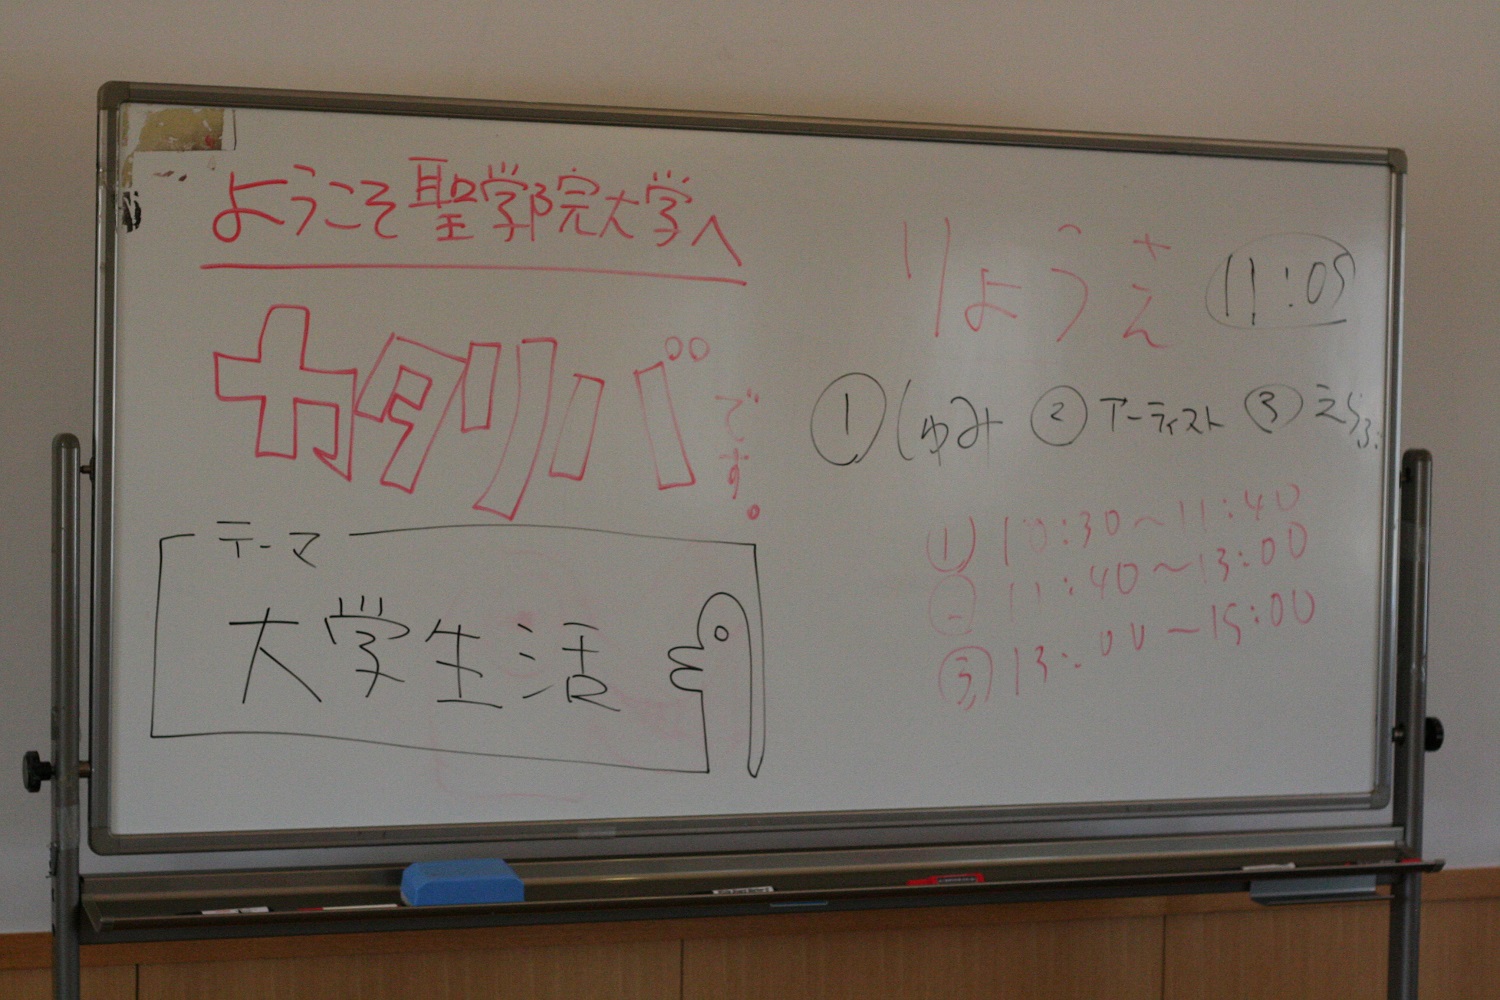 ようこそ聖学院大学へ
カタリバです。
テーマ
大学生活
りょうさん 11:05
① ゆみ ② アーティスト ③
① 10:30～11:40
② 11:40～13:00
③ 13:00～15:00